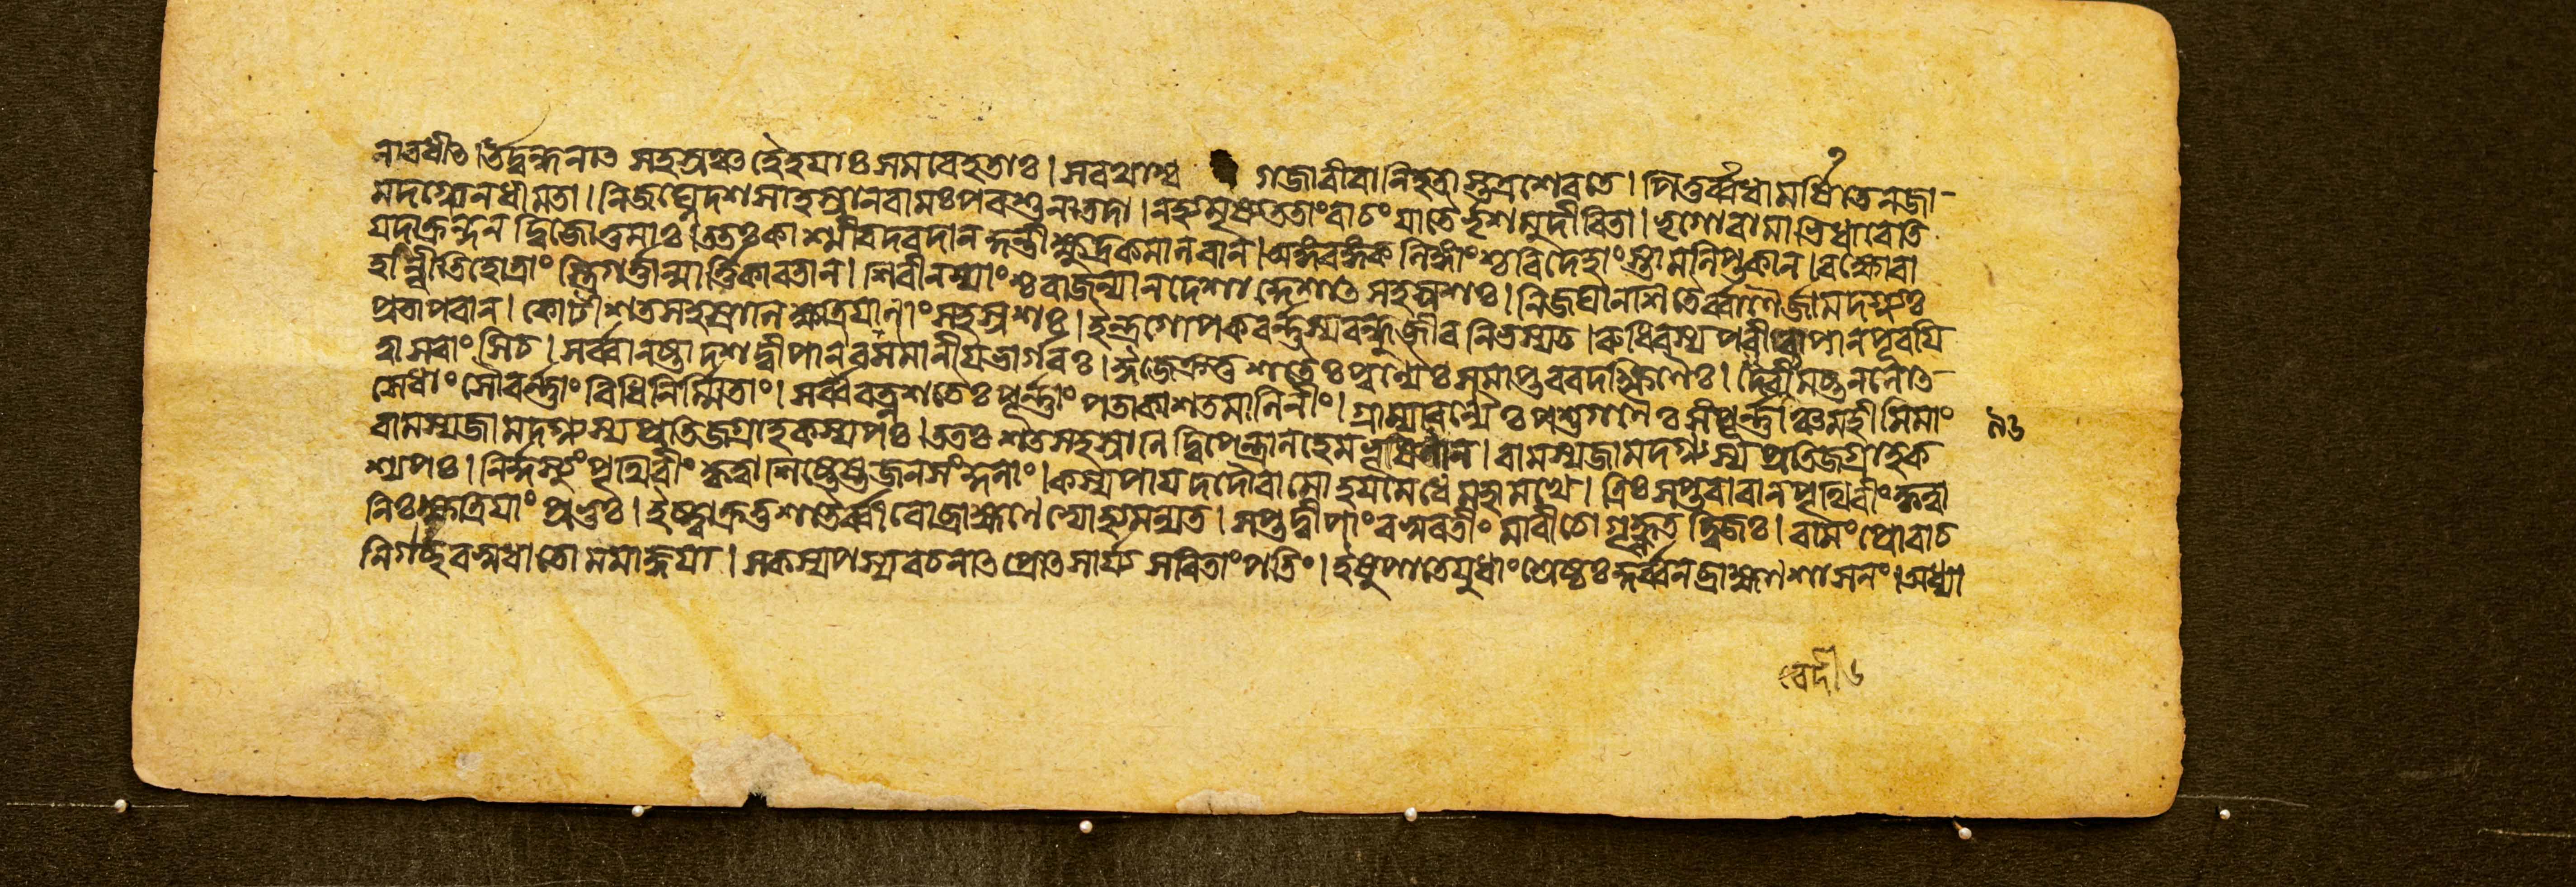 নাবধীত। উদ্বন্ধনাত সহস্রঞ্চ হৈহযাঃ সমবেহতাঃ। সবথাশ্ব গজাবীবা নিহতা স্তত্রশেবতে। পিতুর্ব্বধামর্ষিতেনজা-
মদগ্ন্যেনধীমতা। নিজঘ্নেদশসাহস্রানবামঃ পবশুনাতদা। নহ্যমৃষ্যততাংবাচং যাতৈর্ভৃশমুদীবিতা। ভৃগোবামাভিধাবেতি
যদাক্রন্দন দ্বিজোত্তমাঃ। ততঃকাশ্মীবদবদান কুন্তী ক্ষুদ্রকমানবান। অঙ্গবঙ্গকলিঙ্গাংশ্চবিদেহাংস্তাম্রলিপ্তকান। বক্ষোবা
হান্বীতিহোত্রাং স্ত্রিগর্ত্তান্মার্ত্তিকাবতান। শিবীনন্যাংশ্চবাজন্যানদেশাদ্দেশাত সহস্রশঃ। নিজঘানশিতৈর্ব্বাণৈর্জামদগ্ন্যঃ
প্রতাপবান। কোটীশতসহস্রানি ক্ষত্রিযাণাং সহস্রশঃ। ইন্দ্রগোপকবর্ন্নস্যবন্ধুজীবনিভস্যচ। রুধিবস্য পবীবাহৈঃপূবযি
ত্বাসবাংসিচ। সর্ব্বানষ্টাদশদ্বীপানবশমানীযভার্গবঃ। ঈজেক্রতুশতৈঃপুণ্যৈঃসমাপ্তববদক্ষিণৈঃ। বেদীমষ্টনলোত্সে-
ধাং সৌবর্ন্নাং বিধিনির্ম্মিতাং। সর্ব্ববত্নশতৈঃ পূর্ন্নাং পতাকাশতমালিনীং। গ্রাম্যাবণ্যৈঃ পশুগণৈঃ সংপূর্ন্নাঞ্চমহীমিমাং
বামস্যজামদগ্ন্যস্য প্রতিজগ্রাহকস্যপঃ। ততঃ শতসহস্রানি দ্বিপেন্দ্রানহেমভূষিতান। বামস্যজামদগ্ন্যস্য প্রতিজগ্রাহক
শ্যপঃ। নির্দ্দস্যুং পৃথিবীং কৃত্বা শিষ্টেষ্টজনসংকুলাং। কস্যপাযদদৌবামোহযমেধেমহামখে। ত্রিঃসপ্তবাবানপৃথিবীংকৃত্বা
নিঃক্ষত্রিযাং প্রভুঃ। ইষ্ট্বাক্রতুশতৈর্ব্বীবোব্রাহ্মণেভ্যোহ্যমন্যত। সপ্তদ্বীপাং বসুমতীং মাবীচোগৃহ্ণত দ্বিজঃ। বামং প্রোবাচ
নির্গচ্ছবসুধাতোমমাজ্ঞযা। সকস্যপস্যবচনাত প্রোত্সার্য্য সবিতাংপতিং। ইষুপাতেযুধাংশ্রেষ্ঠঃকুর্ব্বনব্রাহ্মণশাসনং। অধ্যা
৯৬
বেদী৬